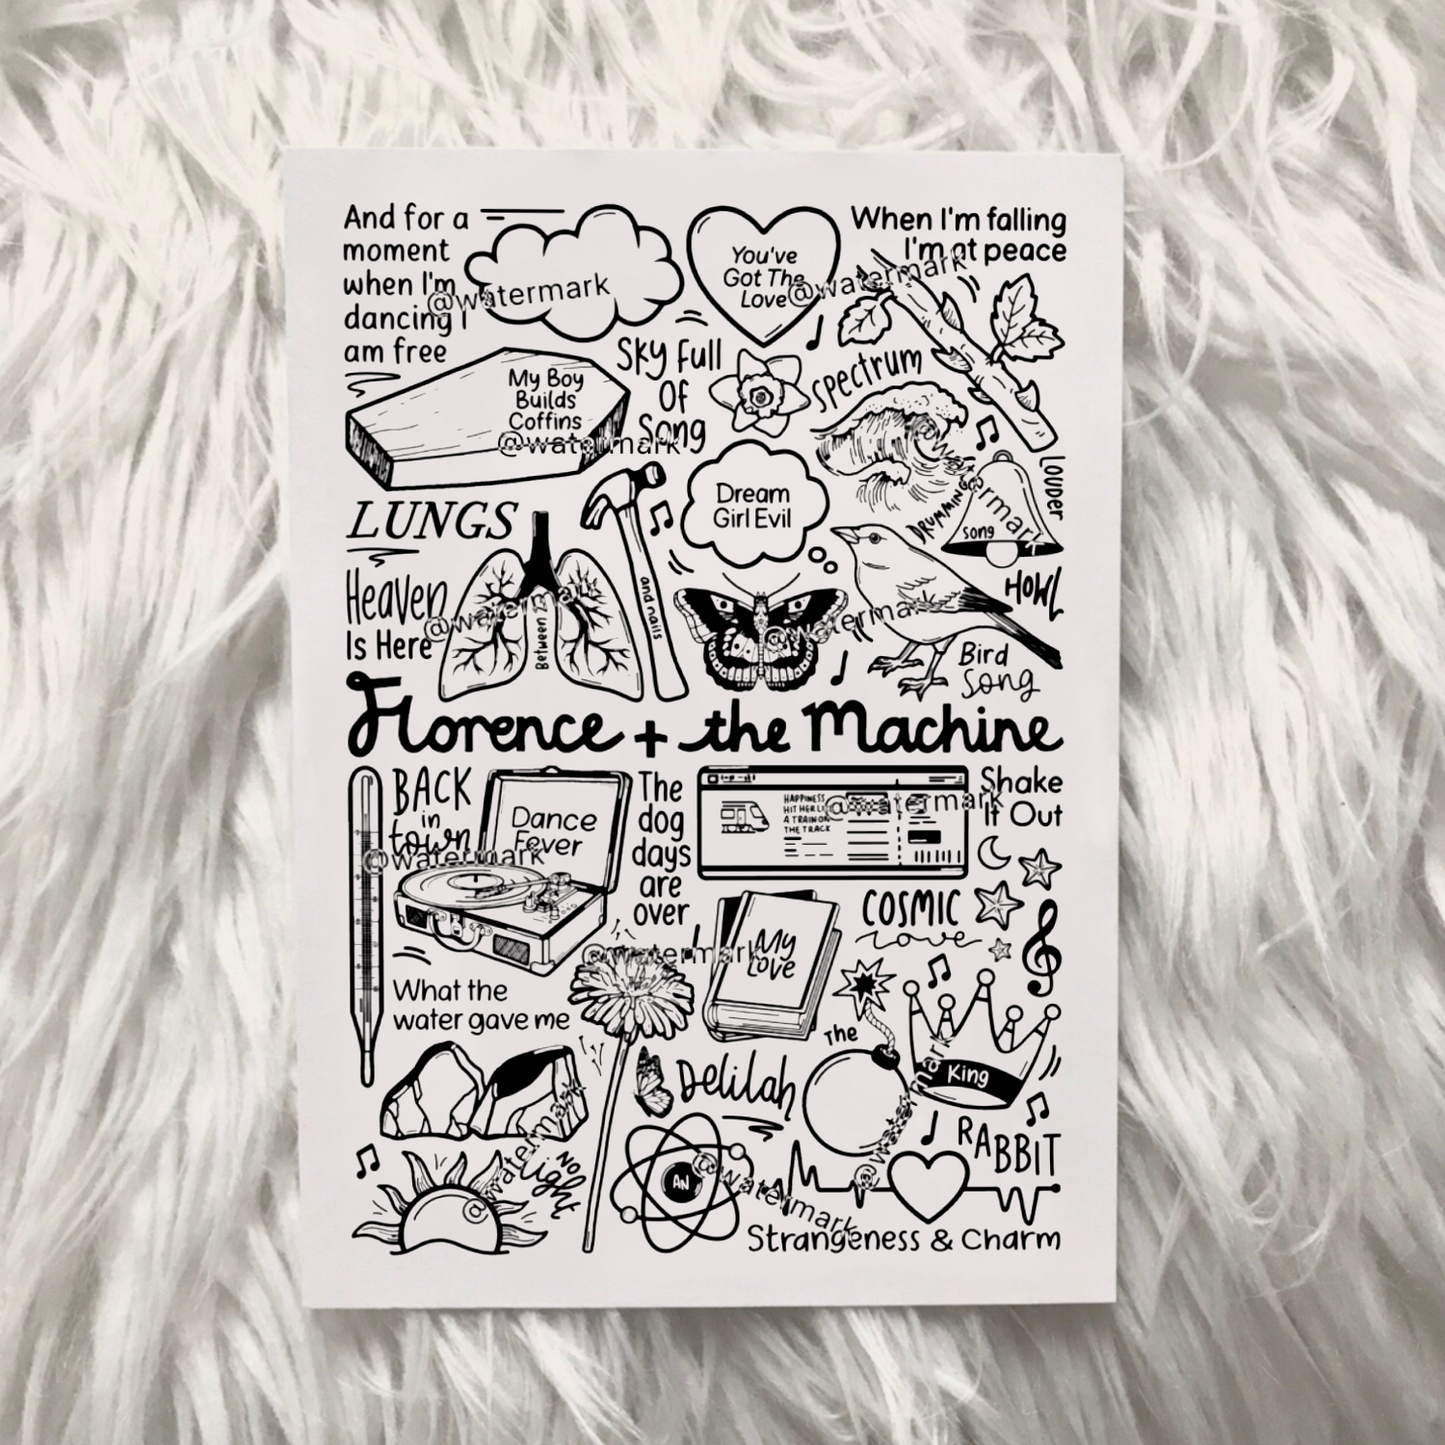 And for a
moment
when I'm
dancing I
am free
You've
Got The
Love
When I'm falling
I'm at peace
@watermark
@watermark
@watermark
My Boy
Builds
Coffins
@watermark
Sky Full
Of
Song
Spectrum
LUNGS
Dream
Girl Evil
DRUMMING
song
LOUDER
@watermark
HOWL
Heaven
Is Here
@watermark
Between 2
and nails
@watermark
Bird
Song
Florence + the Machine
BACK
in
town
@watermark
Dance
Fever
The
dog
days
are
over
HAPPINESS
HIT HER LI
A TRAIN ON
THE TRACK
@watermark
Shake
It Out
COSMIC
Love
My
Love
@watermark
What the
water gave me
Delilah
The
King
@watermark
RABBIT
No
Light
@watermark
AN
@watermark
Strangeness & Charm